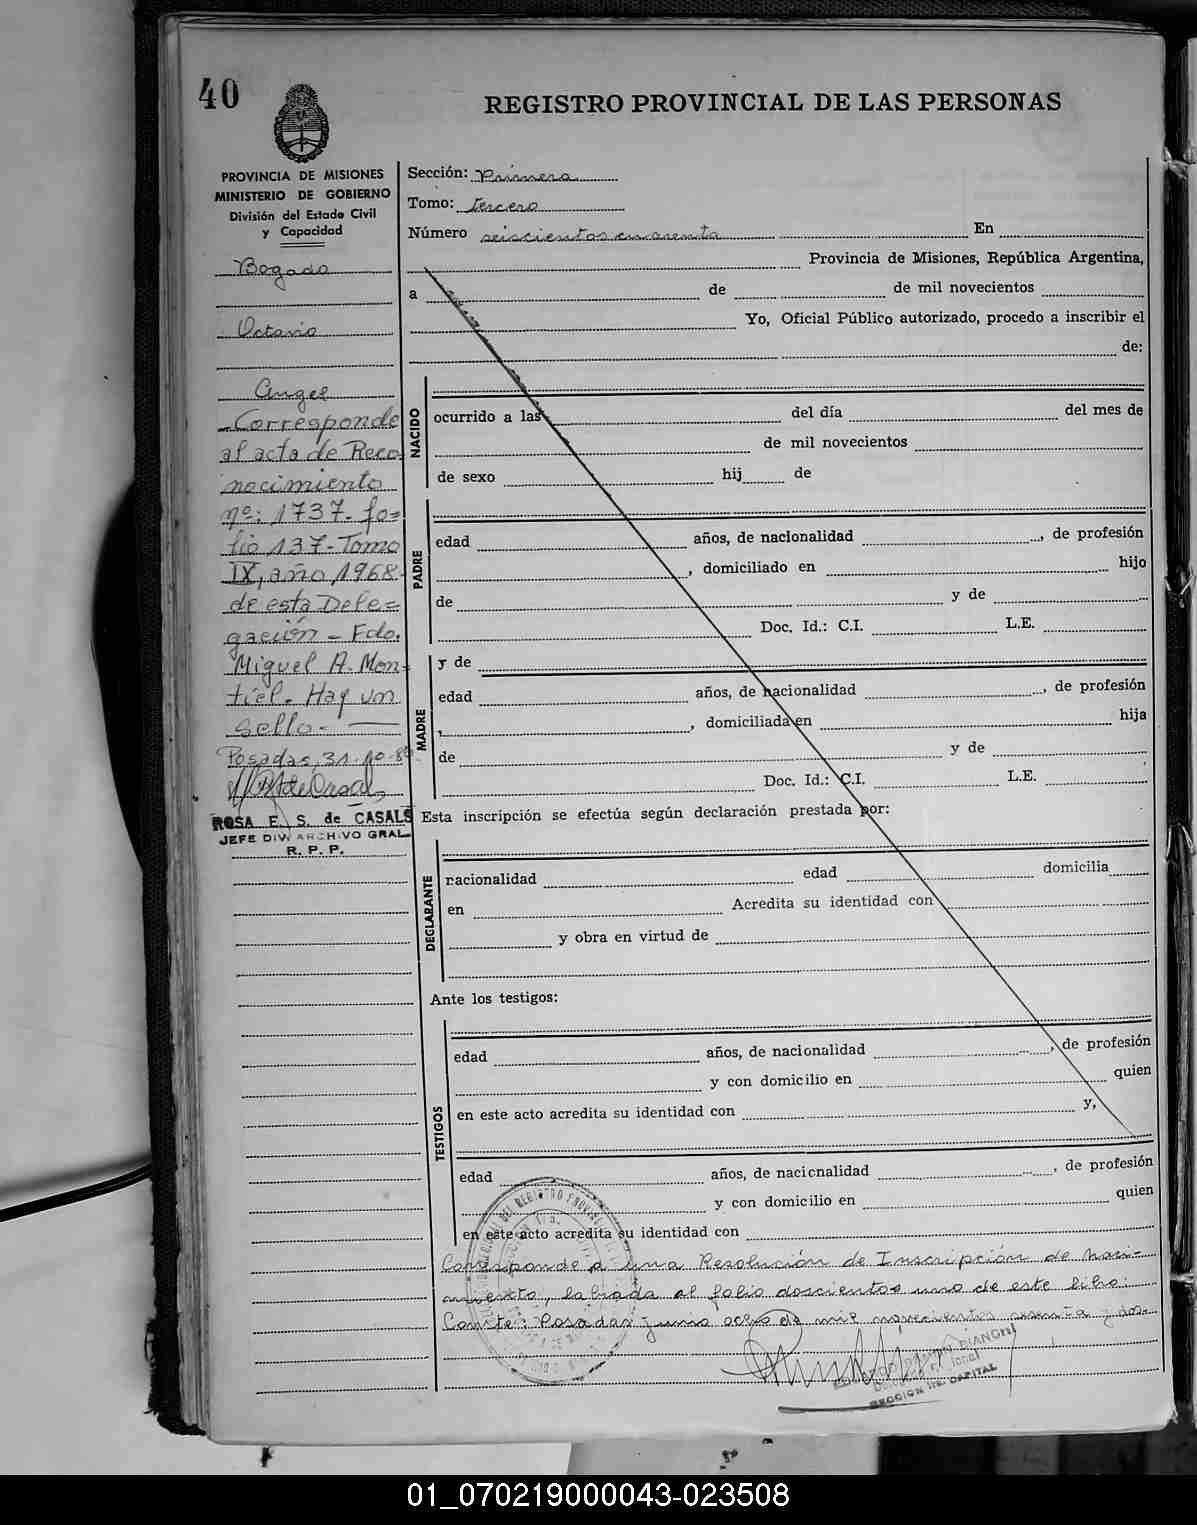 40
REGISTRO PROVINCIAL DE LAS PERSONAS
PROVINCIA DE MISIONES
MINISTERIO DE GOBIERNO
División del Estado Civil
y Capacidad
Bogado
Octavio
Angel
- Corresponde
al acta de Reco
nocimiento
nº: 1737- fo=
lio 137- Tomo
IX, año 1968
de esta Dele=
gación - Fdo.
Miguel A. Mon-
tiel. Hay un
sello.
Posadas, 31-10-8
ROSA E. S. de CASALS
JEFE DIV. ARCHIVO GRAL.
R. P. P.
Sección: Primera
Tomo: tercero
Número seiscientos cuarenta En
Provincia de Misiones, República Argentina,
a de de mil novecientos
Yo, Oficial Público autorizado, procedo a inscribir el
de:
NACIDO
ocurrido a las del día del mes de
de mil novecientos
de sexo hij de
PADRE
edad años, de nacionalidad , de profesión
, domiciliado en hijo
de y de
Doc. Id.: C.I. L.E.
MADRE
y de
edad años, de nacionalidad , de profesión
, domiciliada en hija
de y de
Doc. Id.: C.I. L.E.
Esta inscripción se efectúa según declaración prestada por:
DECLARANTE
nacionalidad edad domicilia
en Acredita su identidad con
y obra en virtud de
Ante los testigos:
TESTIGOS
edad años, de nacionalidad , de profesión
y con domicilio en quien
en este acto acredita su identidad con y,
edad años, de nacionalidad , de profesión
y con domicilio en quien
en este acto acredita su identidad con
Corresponde a una Resolución de Inscripción de Naci-
miento, labrada al folio doscientos uno de este libro.
Conste: Posadas, junio ocho de mil novecientos sesenta y dos.
BIANCHI
SECCION 1ra. CAPITAL
01_070219000043-023508